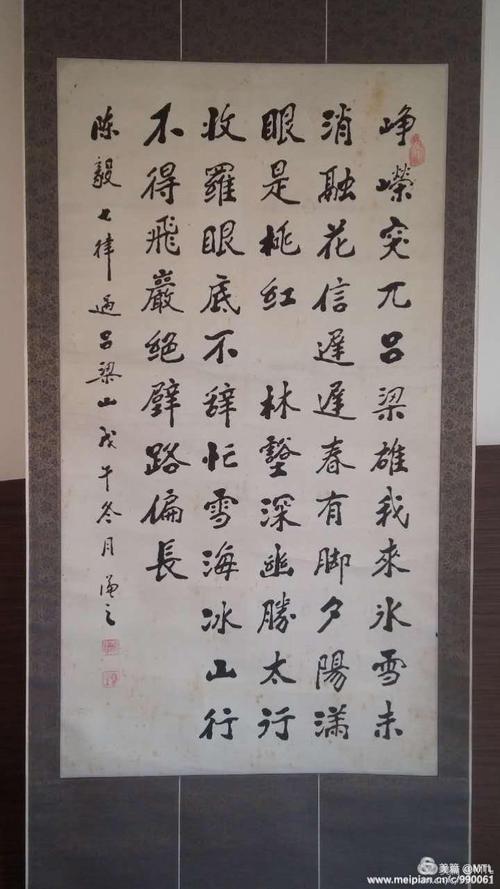 峥嶸突兀吕梁雄我来氷雪未
消融花信遲遲春有脚夕陽满
眼是桃红 林壑深幽勝太行
收羅眼底不辞忙雪海冰山行
不得飛巖絶壁路偏長
陈毅七律過吕梁山戊午冬月
美篇 @MTL
www.meipian.cn/c/990061